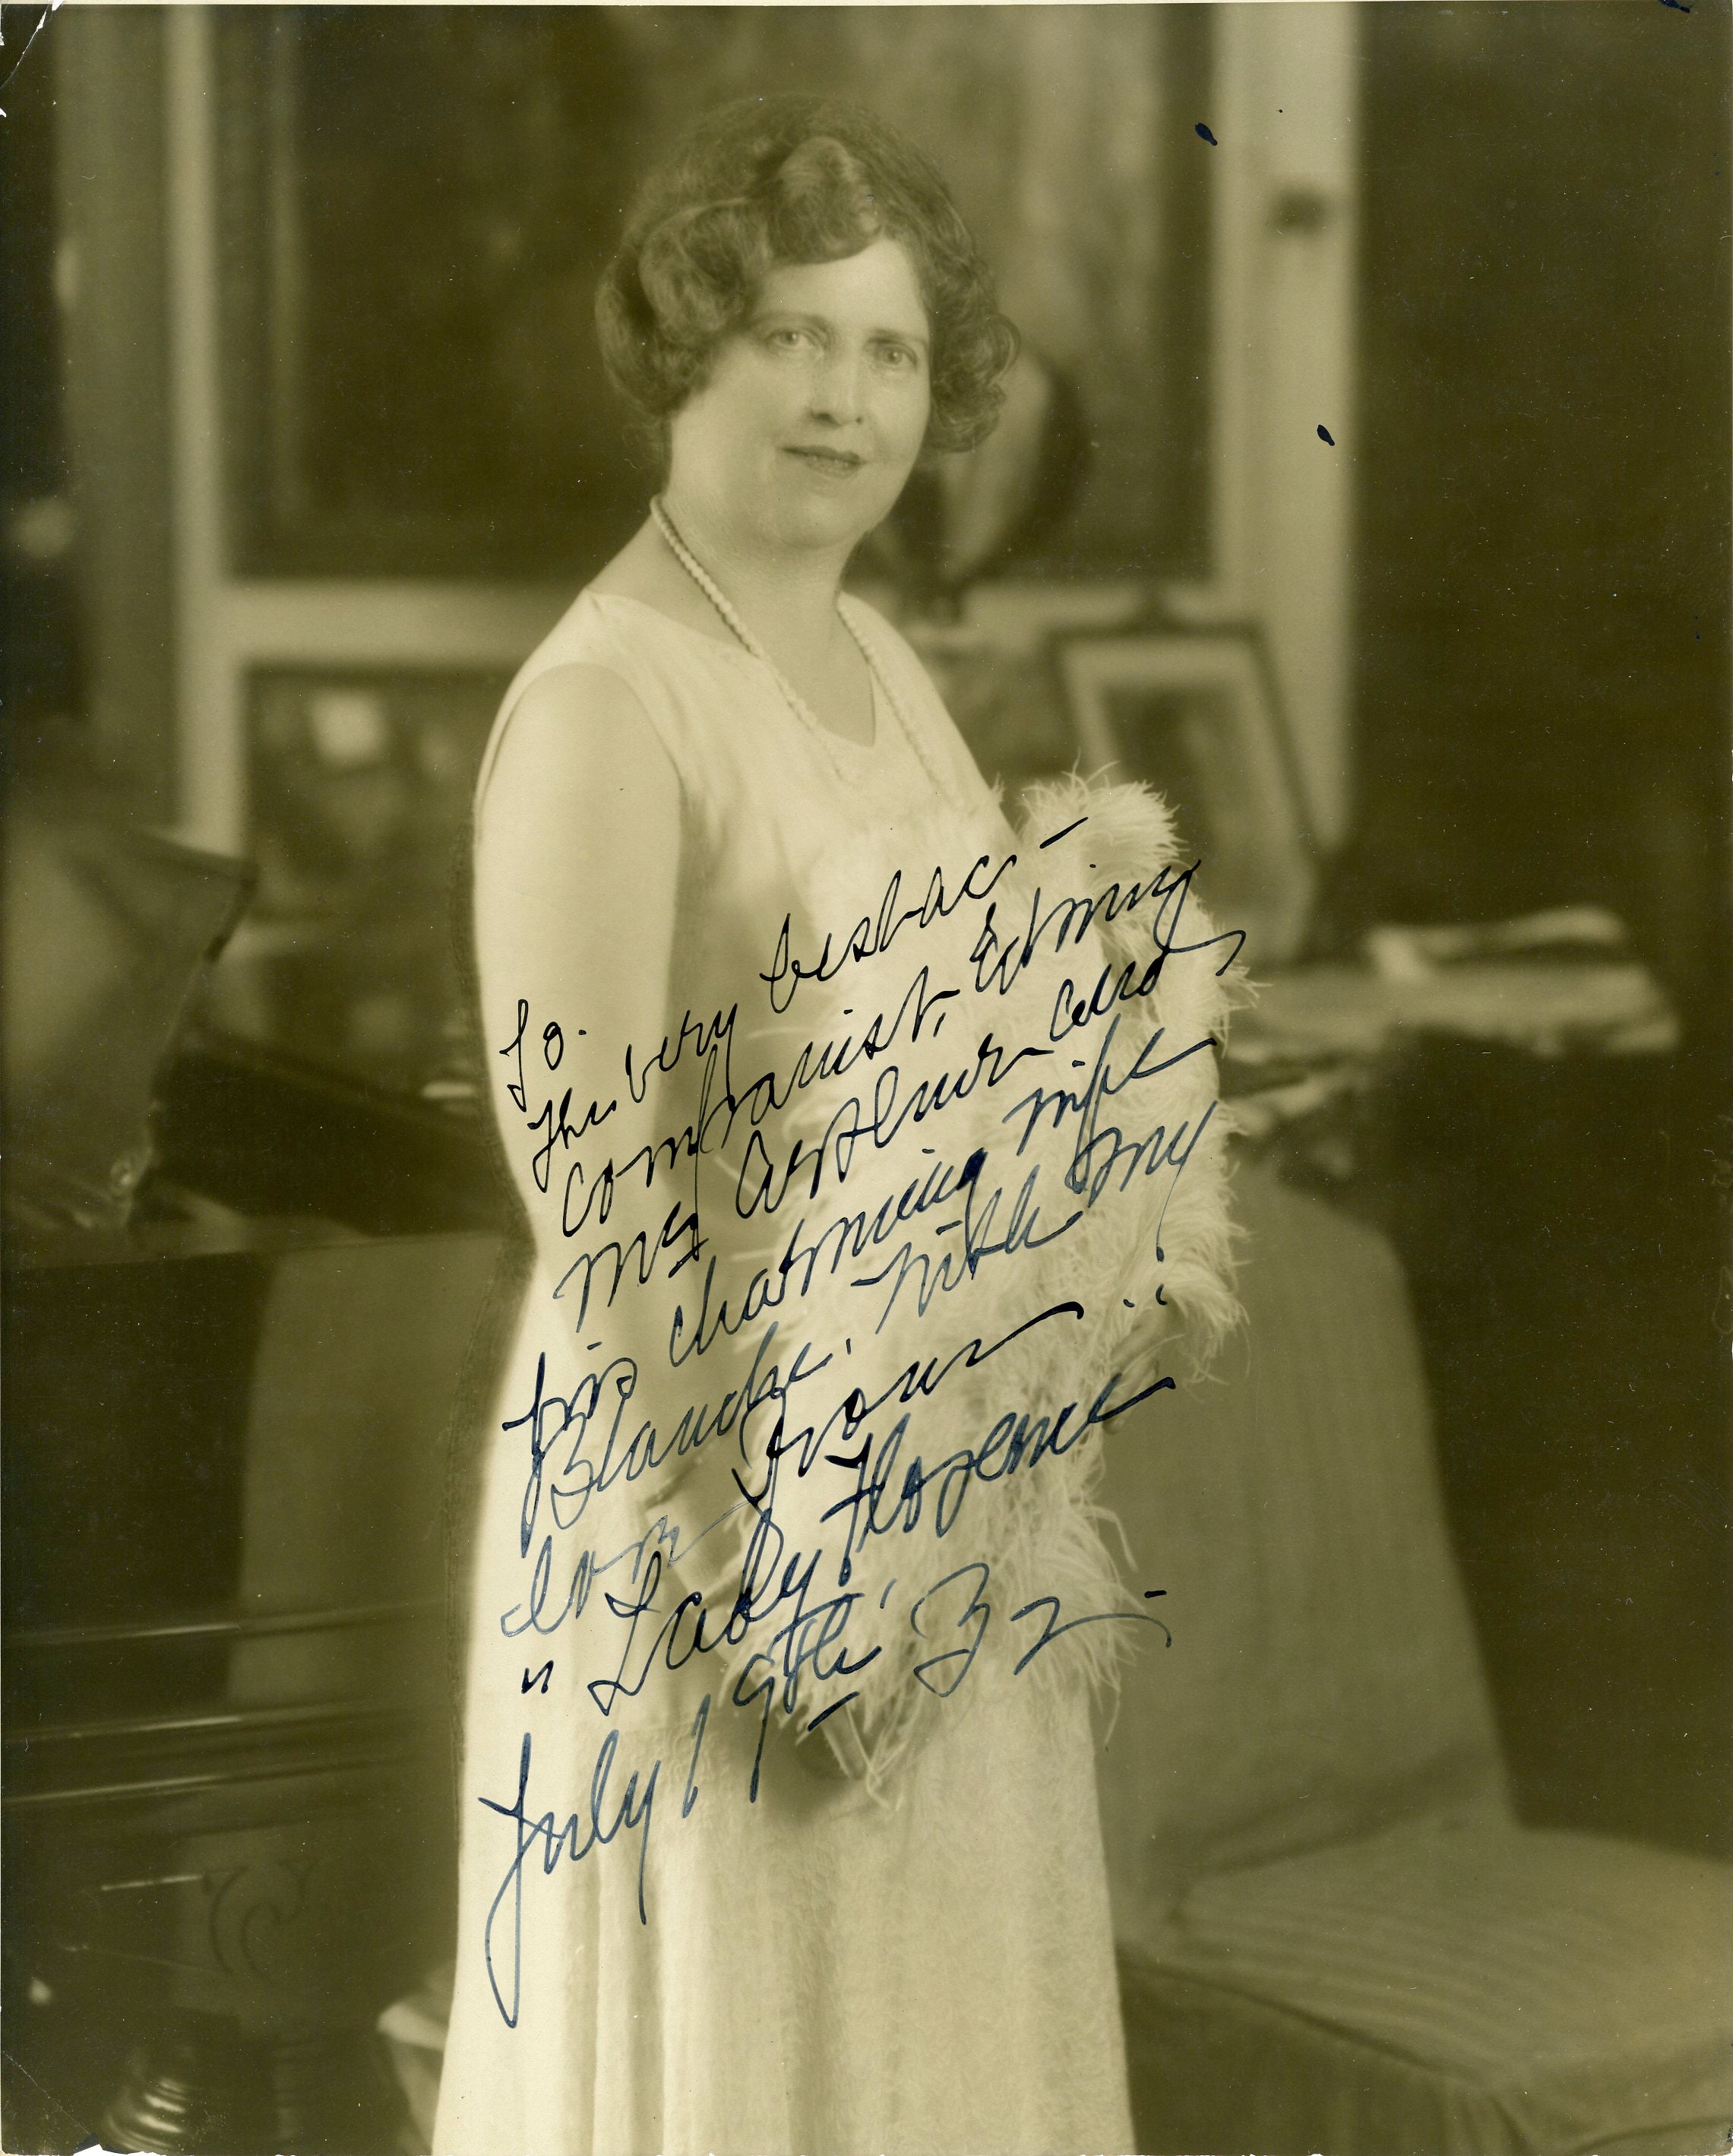 To.
the very best ac-
companist, Edwin
Mc Arthur and
his charming wife
Blanche. With my
love
"Lady Florence
July 19th,